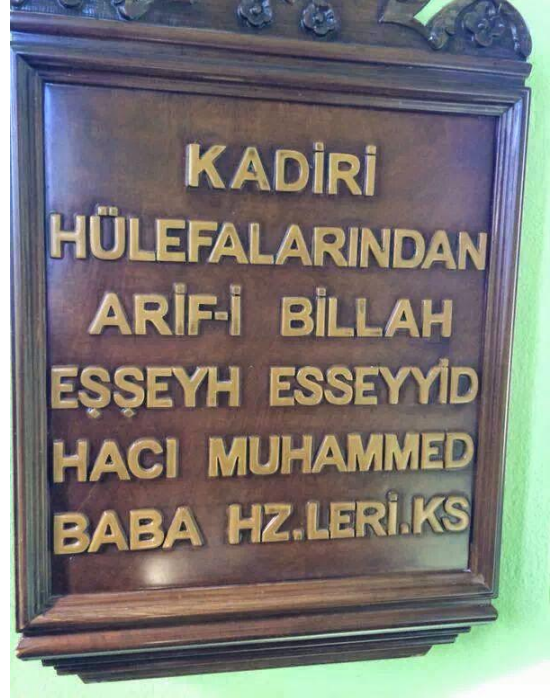 KADİRİ
HÜLEFALARINDAN
ARİF-İ BİLLAH
EŞŞEYH ESSEYYİD
HACI MUHAMMED
BABA HZ.LERİ.KS